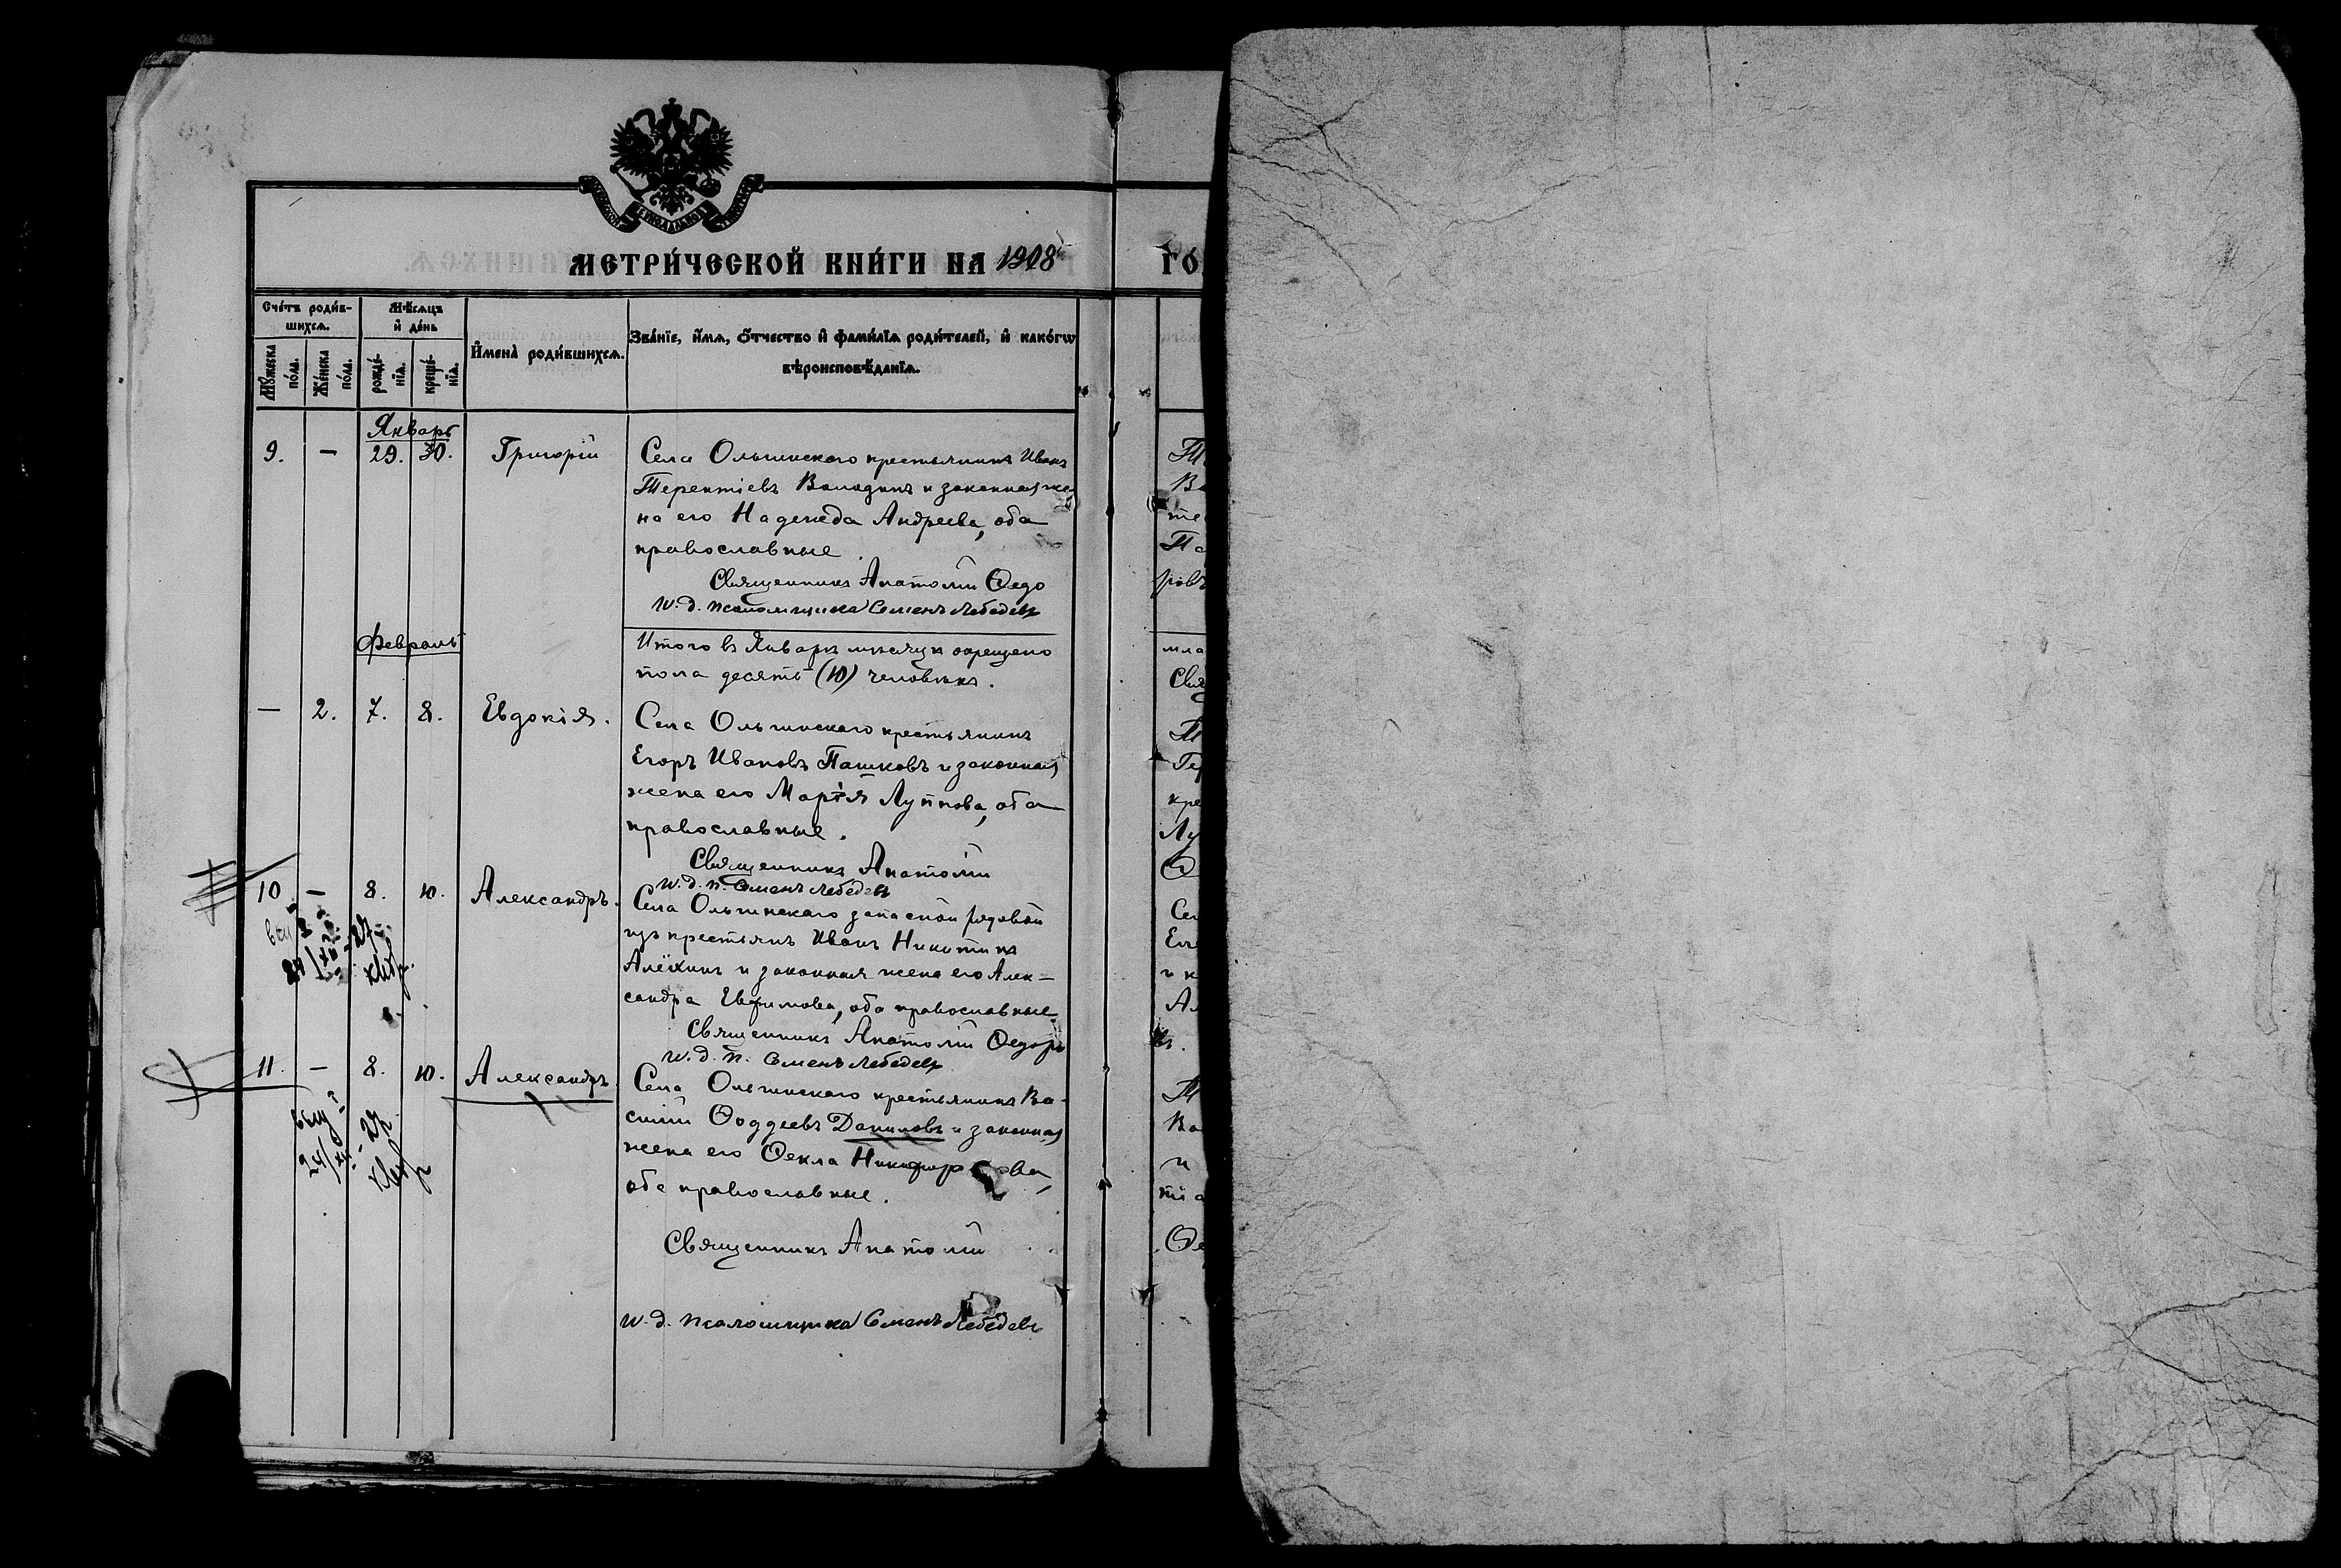 МЕТРИ́ЧЕСКОЙ КНИ́ГИ НА 1908 ГО
Сче́тъ роди́в-
шихся.
Мѣсяцъ
и де́нь
И́мена̀ роди́вшихся.
Зва́нїе, и́мя, о́тчество и фами́лїя роди́телей, и како́гѡ
вѣроисповѣ́данїя.
Му́жеска
по́ла.
Же́нска
по́ла.
рожде́-
нїя.
креще́-
нїя.
Январь
9. — 29. 30. Григорій
Села Ольгинскаго крестьянинъ Иванъ
Терентіевъ Володинъ и законная же
на его Надежда Андреева, оба
православные
Священникъ Анатолій Ѳедо
И. д. псаломщика Семенъ Лебедевъ
Февраль
Итого въ Январѣ мѣсяцѣ окрещено
пола десять (10) человѣкъ.
— 2. 7. 8. Евдокія.
Села Ольгинскаго крестьянинъ
Егоръ Ивановъ Пашковъ и законная
жена его Марія Луппова, оба
православные.
Священникъ Анатолій
И. д. п. Семенъ Лебедевъ
10 — 8. 10. Александръ.
Села Ольгинскаго запасной рядовой
изъ крестьянъ Иванъ Никитинъ
Алёхинъ и законная жена его Алек-
сандра Евфимова, оба православные.
Священникъ Анатолій Ѳедоръ
И. д. п. Семенъ Лебедевъ
11. — 8. 10. Александръ.
Села Ольгинскаго крестьянинъ Ва-
силій Ѳаддеевъ Даниловъ и законная
жена его Ѳекла Никифорова,
оба православные.
Священникъ Анатолій
И. д. псаломщика Семенъ Лебедевъ